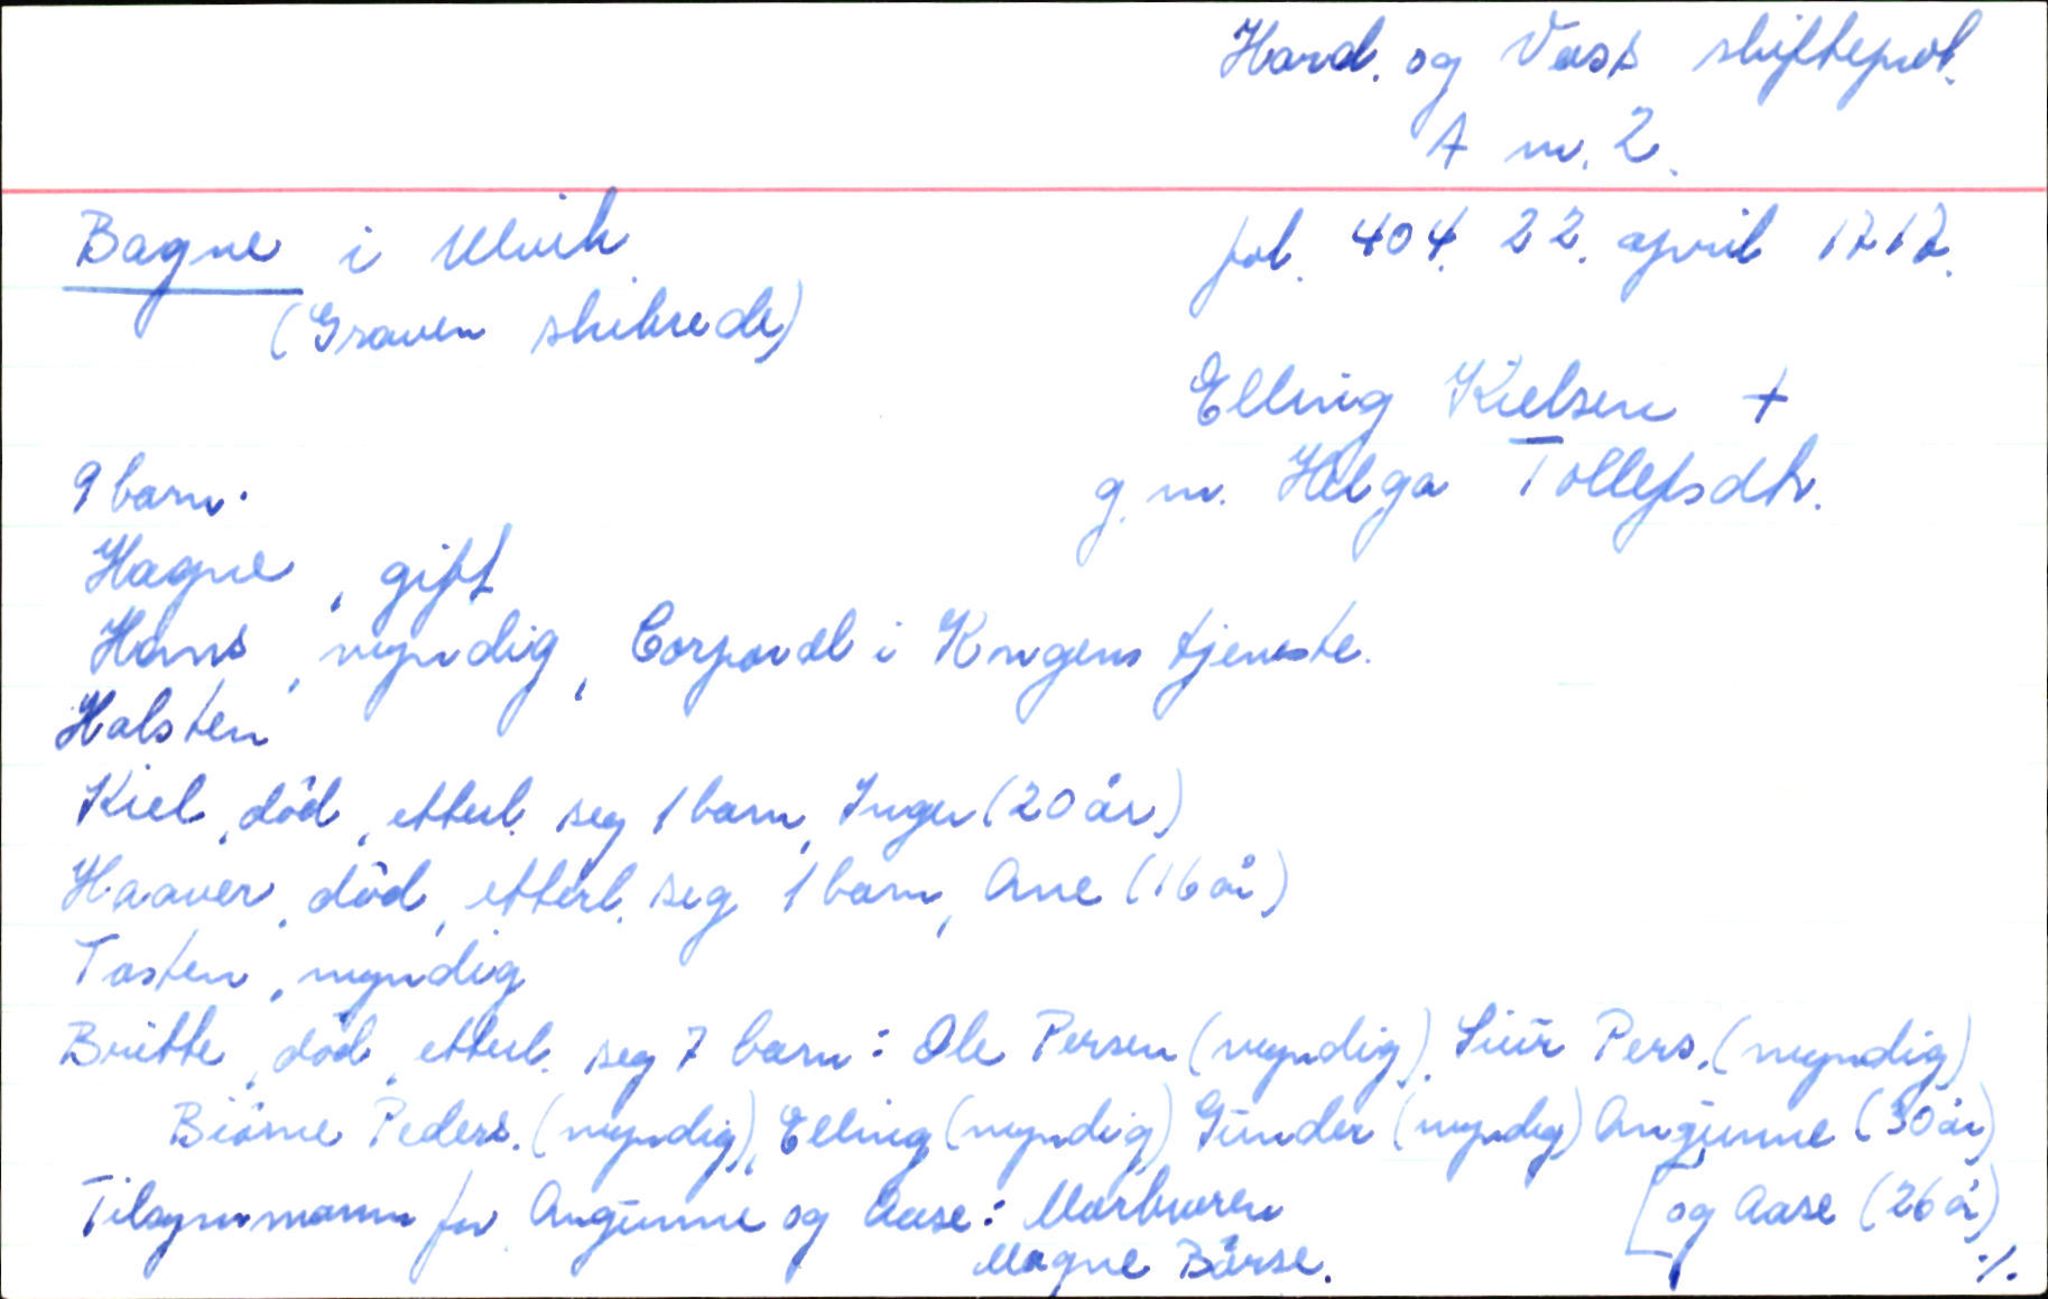 Hard. og Voss skiftepról.
A nr. 2.
Bagne i Ulvik
fol. 404. 22. april 1717.
(Graven skibrede)
Elling Kielsen +
g.m. Helga Tollefsdtr.
9 barn.
Hagne, gift
Hans, myndig, Corporal i Kongens tjeneste.
Halsten
Kiel, död, etterl. seg 1 barn, Inger (20 år)
Haaver, död, etterl. seg 1 barn, Ane (16 år)
Tosten, myndig
Britte, död, etterl. seg 7 barn: Ole Persen (myndig), Siür Pers. (myndig)
Biörne Peders. (myndig), Elling (myndig) Günder (myndig) Angünne (30 år)
[og Aase (26 år)
Tilsynsmann for Angünne og Aase: Morbroren
Magne Börse.
./.